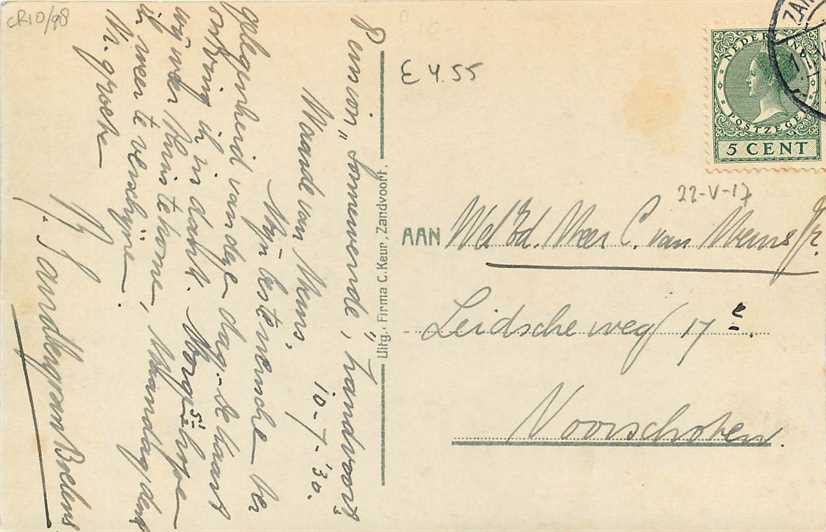 CR10/98
Pension „Zonnewende", Zandvoort
10-7-'30.
Waarde van Mens,
Mijn beste wensche ter
gelegenheid van deze dag. – De kaart
ontving ik in dank. Morgen hope
wij weer thuis te kome, Maandag denk
ik weer te verschijne.
M. groete
J. Zandbergen Boelens
Uitg. Firma C. Keur, Zandvoort.
£ 4.55
NEDERLAND
POSTZEGEL
5 CENT
ZAN
22-V-17
AAN Wel Ed. Heer C. van Mens Jr.
Leidscheweg 17 e
Voorschoten.